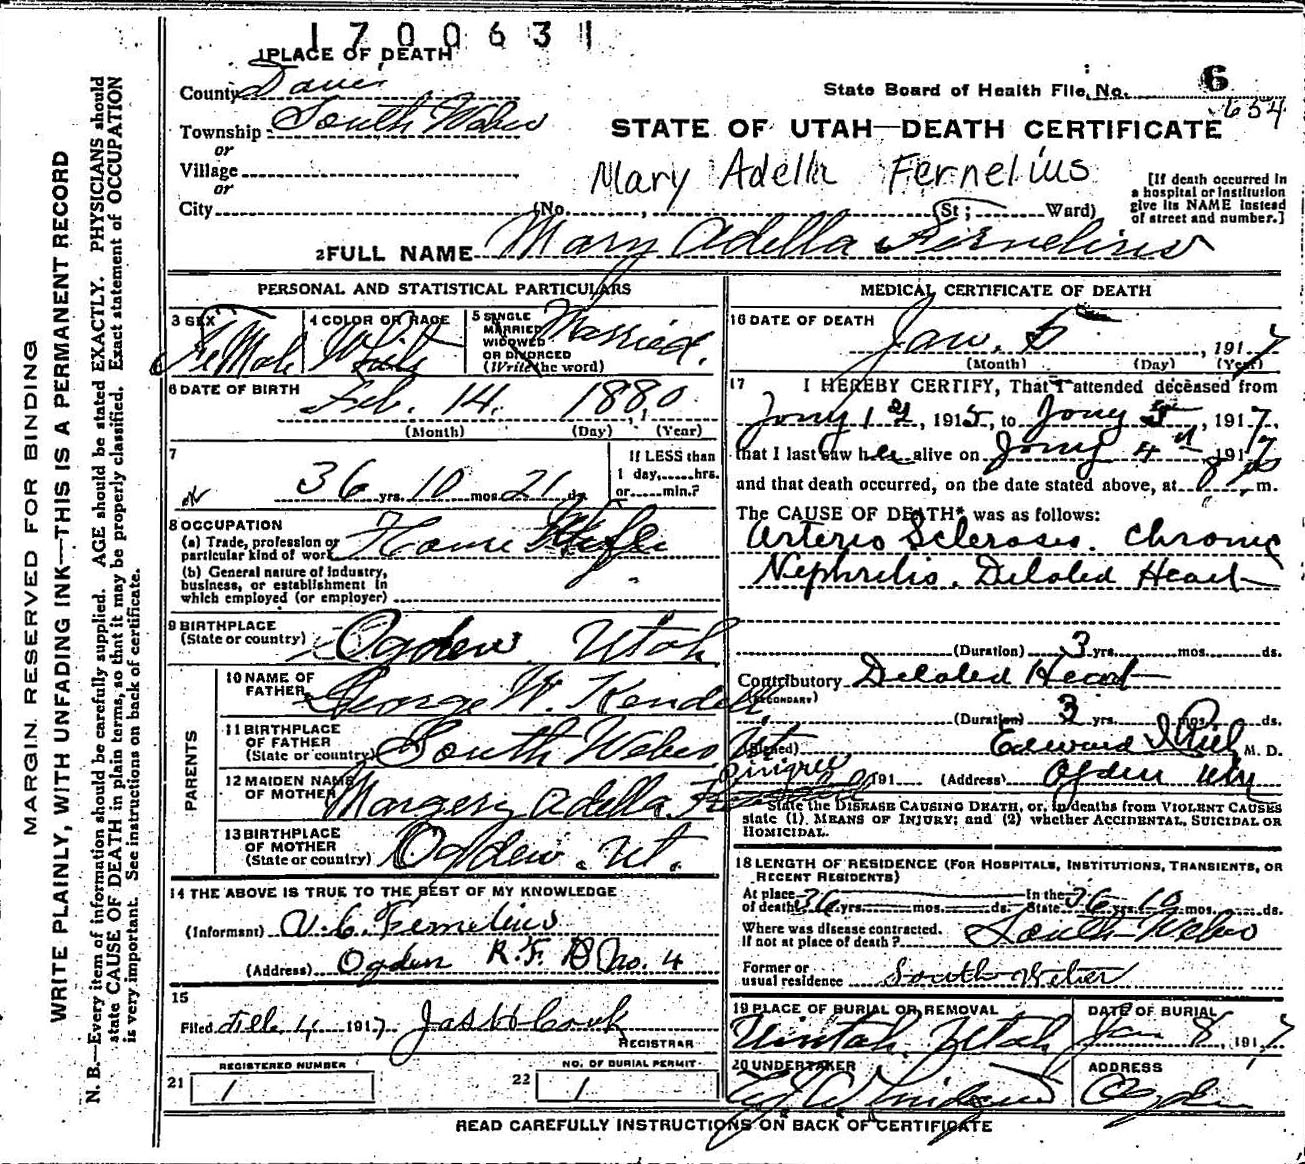 1700631
1 PLACE OF DEATH
County Davis
Township South Weber
or
Village
or
City (No. , St; Ward)
State Board of Health File, No. 6
654
STATE OF UTAH—DEATH CERTIFICATE
Mary Adella Fernelius
[If death occurred in
a hospital or institution
give its NAME instead
of street and number.]
2 FULL NAME Mary Adella Fernelius
PERSONAL AND STATISTICAL PARTICULARS
3 SEX FeMale
4 COLOR OR RACE White
5 SINGLE
MARRIED
WIDOWED
OR DIVORCED
(Write the word)
Married.
6 DATE OF BIRTH
Feb. 14. 1880
(Month) (Day) (Year)
7
36 yrs. 10 mos. 21 ds.
If LESS than
1 day,......hrs.
or......min.?
8 OCCUPATION
(a) Trade, profession or
particular kind of work House Wife
(b) General nature of industry,
business, or establishment in
which employed (or employer)
9 BIRTHPLACE
(State or country) Ogden Utah
PARENTS
10 NAME OF
FATHER George W. Kendell
11 BIRTHPLACE
OF FATHER
(State or country) South Weber Ut
12 MAIDEN NAME
OF MOTHER Margery Adella Pingree
13 BIRTHPLACE
OF MOTHER
(State or country) Ogden. Ut.
14 THE ABOVE IS TRUE TO THE BEST OF MY KNOWLEDGE
(Informant) Fernelius
(Address) Ogden R.F.D No. 4
15
Filed Feb 4, 1917 Jas H Cook
REGISTRAR
21 REGISTERED NUMBER
1
22 NO. OF BURIAL PERMIT
1
MEDICAL CERTIFICATE OF DEATH
16 DATE OF DEATH
Jan. 5 , 1917
(Month) (Day) (Year)
17 I HEREBY CERTIFY, That I attended deceased from
Jany 1 , 1915, to Jany 5 , 1917,
that I last saw her alive on Jany 4 1917
and that death occurred, on the date stated above, at 8 m.
The CAUSE OF DEATH* was as follows:
Arterio Sclerosis. Chronic
Nephritis. Dilated Heart
(Duration) 3 yrs. mos. ds.
Contributory Dilated Heart
(SECONDARY)
(Duration) 3 yrs. mos. ds.
(Signed) Edward I Rich M. D.
191 (Address) Ogden Utah
State the DISEASE CAUSING DEATH, or, in deaths from VIOLENT CAUSES
state (1) MEANS OF INJURY; and (2) whether ACCIDENTAL, SUICIDAL OR
HOMICIDAL.
18 LENGTH OF RESIDENCE (FOR HOSPITALS, INSTITUTIONS, TRANSIENTS, OR
RECENT RESIDENTS)
At place
of death 36 yrs. mos. ds. In the State 36 yrs. 10 mos. ds.
Where was disease contracted.
if not at place of death? South Weber
Former or
usual residence South Weber
19 PLACE OF BURIAL OR REMOVAL
Uintah, Utah
DATE OF BURIAL
Jan 8, 1917
20 UNDERTAKER
ADDRESS
Ogden
READ CAREFULLY INSTRUCTIONS ON BACK OF CERTIFICATE
MARGIN RESERVED FOR BINDING
WRITE PLAINLY, WITH UNFADING INK—THIS IS A PERMANENT RECORD
N. B.—Every item of information should be carefully supplied. AGE should be stated EXACTLY. PHYSICIANS should
state CAUSE OF DEATH in plain terms, so that it may be properly classified. Exact statement of OCCUPATION
is very important. See instructions on back of certificate.